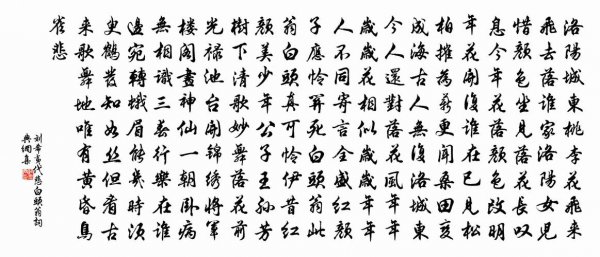 洛陽城東桃李花飛来
飛去落誰家洛陽女児
惜顏色坐見落花長叹
息今年花落顏色改明
年花開復誰在已見松
柏摧為薪更聞桑田变
成海古人無復洛城東
今人還對落花風年年
歲歲花相似歲歲年年
人不同寄言全盛红顏
子應怜半死白頭翁此
翁白頭真可怜伊昔红
顏美少年公子王孫芳
樹下清歌妙舞落花前
光禄池台開锦绣將軍
楼閣畫神仙一朝卧病
無相識三春行樂在誰
邊宛轉蛾眉能幾時須
臾鶴髪知如丝但看古
来歌舞地唯有黄昏鳥
雀悲
劉希夷代悲白頭翁詞